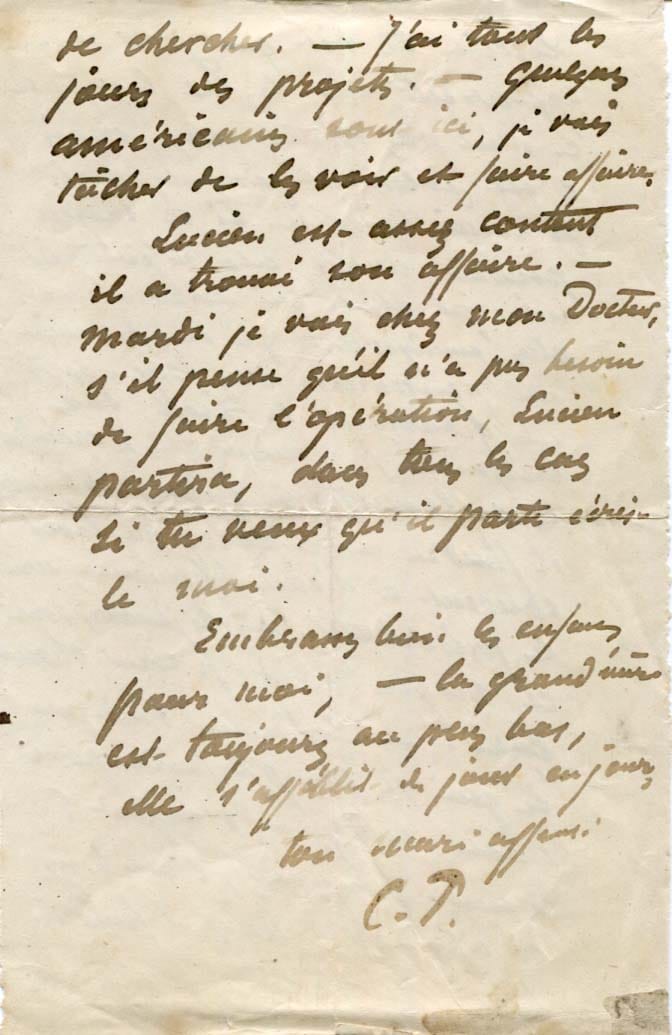 de chercher. — J'ai tous les
jours des projets. — Quelques
américains sont ici, je vais
tâcher de les voir et faire affaire.
Lucien est assez content
il a trouvé son affaire. —
Mardi je vais chez mon Docteur,
s'il pense qu'il n'a pas besoin
de faire l'opération, Lucien
partira, dans tous les cas
si tu veux qu'il parte écris-
le moi.
Embrasse bien les enfants
pour moi, — la grand'mère
est toujours au plus bas,
elle s'affaiblit de jour en jour,
ton mari affect.
C. P.